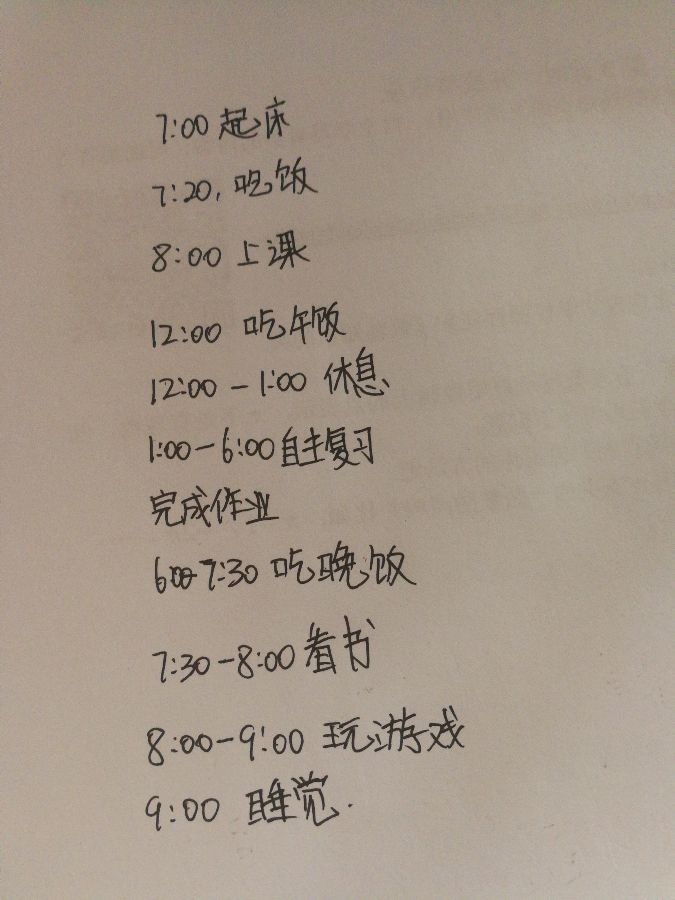 7:00 起床
7:20, 吃饭
8:00 上课
12:00 吃午饭
12:00-1:00 休息
1:00-6:00自主复习
完成作业
6:00-7:30 吃晚饭
7:30-8:00看书
8:00-9:00 玩游戏
9:00 睡觉.